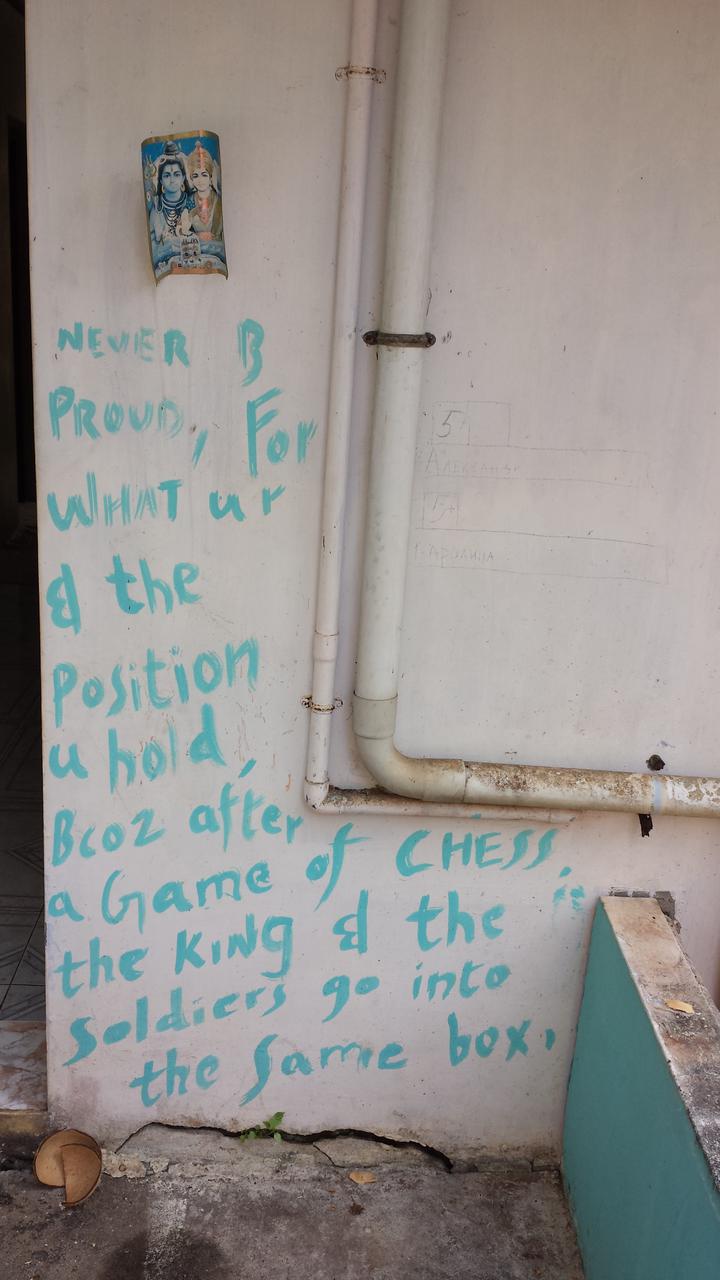 NEVER B
PROUD, For
WHAT ur
& the
Position
u hold,
Bcoz after
a Game of CHESS,
the KING & the
Soldiers go into
the same box.
5
Александр
5+
Каролина